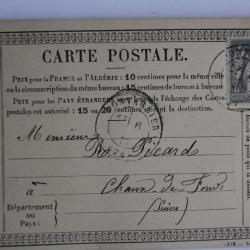 CARTE POSTALE.
PRIX pour la FRANCE et l'ALGÉRIE: 10 centimes pour la même ville
ou la circonscription du même bureau; 15 centimes de bureau à bureau
PRIX POUR LES PAYS ÉTRANGERS l'échange des Cartes
postales est autorisé: 15 ou 20 centimes suivant la destination.
Monsieur
Picards
à Chaux-de-Fonds
(Suisse)
Département
ou
Pays: